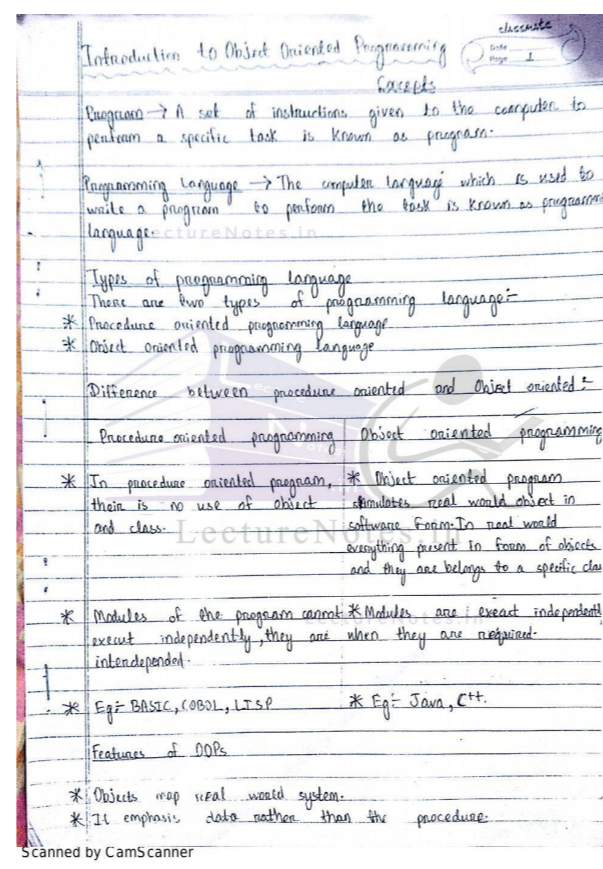 classmate
Date
Page 1
Introduction to Object Oriented Programming
Concepts
Program → A set of instructions given to the computer to
perform a specific task is known as program.
Programming Language → The computer language which is used to
write a program to perform the task is known as programm
language.
LectureNotes.in
Types of programming language
There are two types of programming language:-
* Procedure oriented programming language
* Object oriented programming language
Difference between procedure oriented and Object oriented:-
Procedure oriented programming Object oriented programming
* In procedure oriented program, * Object oriented program
their is no use of object stimulates real world object in
and class. software Form. In real world
LectureNotes.in
everything present in form of objects
and they are belongs to a specific clas
* Modules of the program cannot * Modules are execut independentl
LectureNotes.in
execut independently, they are when they are required.
interdepended.
* Eg:- BASIC, COBOL, LISP * Eg:- Java, C++.
Features of OOPs
* Objects map real world system.
* It emphasis data rather than the procedure.
Scanned by CamScanner